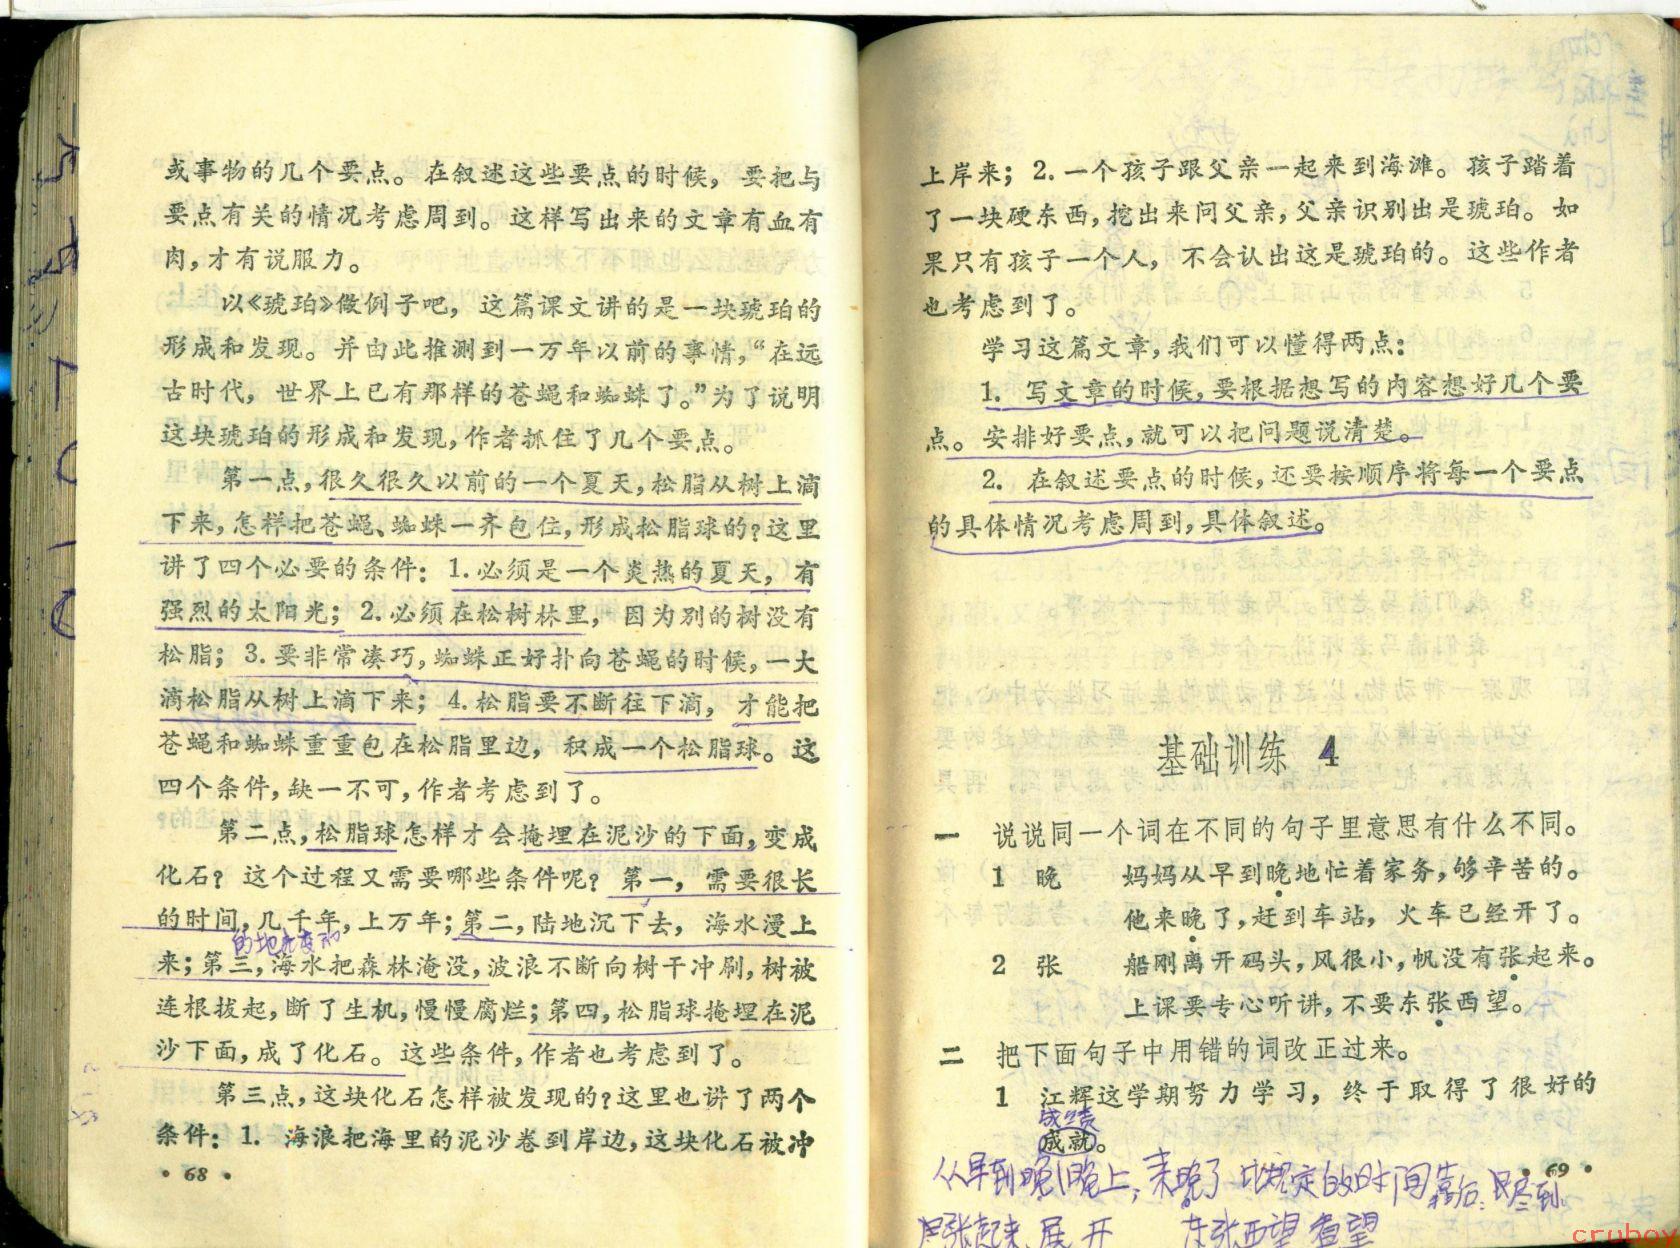 或事物的几个要点。在叙述这些要点的时候，要把与
要点有关的情况考虑周到。这样写出来的文章有血有
肉，才有说服力。
以《琥珀》做例子吧，这篇课文讲的是一块琥珀的
形成和发现。并由此推测到一万年以前的事情，“在远
古时代，世界上已有那样的苍蝇和蜘蛛了。”为了说明
这块琥珀的形成和发现，作者抓住了几个要点。
第一点，很久很久以前的一个夏天，松脂从树上滴
下来，怎样把苍蝇、蜘蛛一齐包住，形成松脂球的？这里
讲了四个必要的条件：1.必须是一个炎热的夏天，有
强烈的太阳光；2.必须在松树林里，因为别的树没有
松脂；3.要非常凑巧，蜘蛛正好扑向苍蝇的时候，一大
滴松脂从树上滴下来；4.松脂要不断往下滴，才能把
苍蝇和蜘蛛重重包在松脂里边，积成一个松脂球。这
四个条件，缺一不可，作者考虑到了。
第二点，松脂球怎样才会掩埋在泥沙的下面，变成
化石？这个过程又需要哪些条件呢？第一，需要很长
的时间，几千年，上万年；第二，陆地沉下去，海水漫上
来；第三，海水把森林淹没，波浪不断向树干冲刷，树被
连根拔起，断了生机，慢慢腐烂；第四，松脂球掩埋在泥
沙下面，成了化石。这些条件，作者也考虑到了。
第三点，这块化石怎样被发现的？这里也讲了两个
条件：1. 海浪把海里的泥沙卷到岸边，这块化石被冲
• 68 •
上岸来；2.一个孩子跟父亲一起来到海滩。孩子踏着
了一块硬东西，挖出来问父亲，父亲识别出是琥珀。如
果只有孩子一个人，不会认出这是琥珀的。这些作者
也考虑到了。
学习这篇文章，我们可以懂得两点：
1. 写文章的时候，要根据想写的内容想好几个要
点。安排好要点，就可以把问题说清楚。
2. 在叙述要点的时候，还要按顺序将每一个要点
的具体情况考虑周到，具体叙述。
基础训练 4
一 说说同一个词在不同的句子里意思有什么不同。
1 晚 妈妈从早到晚地忙着家务，够辛苦的。
他来晚了，赶到车站，火车已经开了。
2 张 船刚离开码头，风很小，帆没有张起来。
上课要专心听讲，不要东张西望。
二 把下面句子中用错的词改正过来。
1 江辉这学期努力学习，终于取得了很好的
成绩
成就。
• 69 •
从早到晚 晚上，来晚了 比规定的时间靠后
张起来 展开 东张西望 看望
cruboy